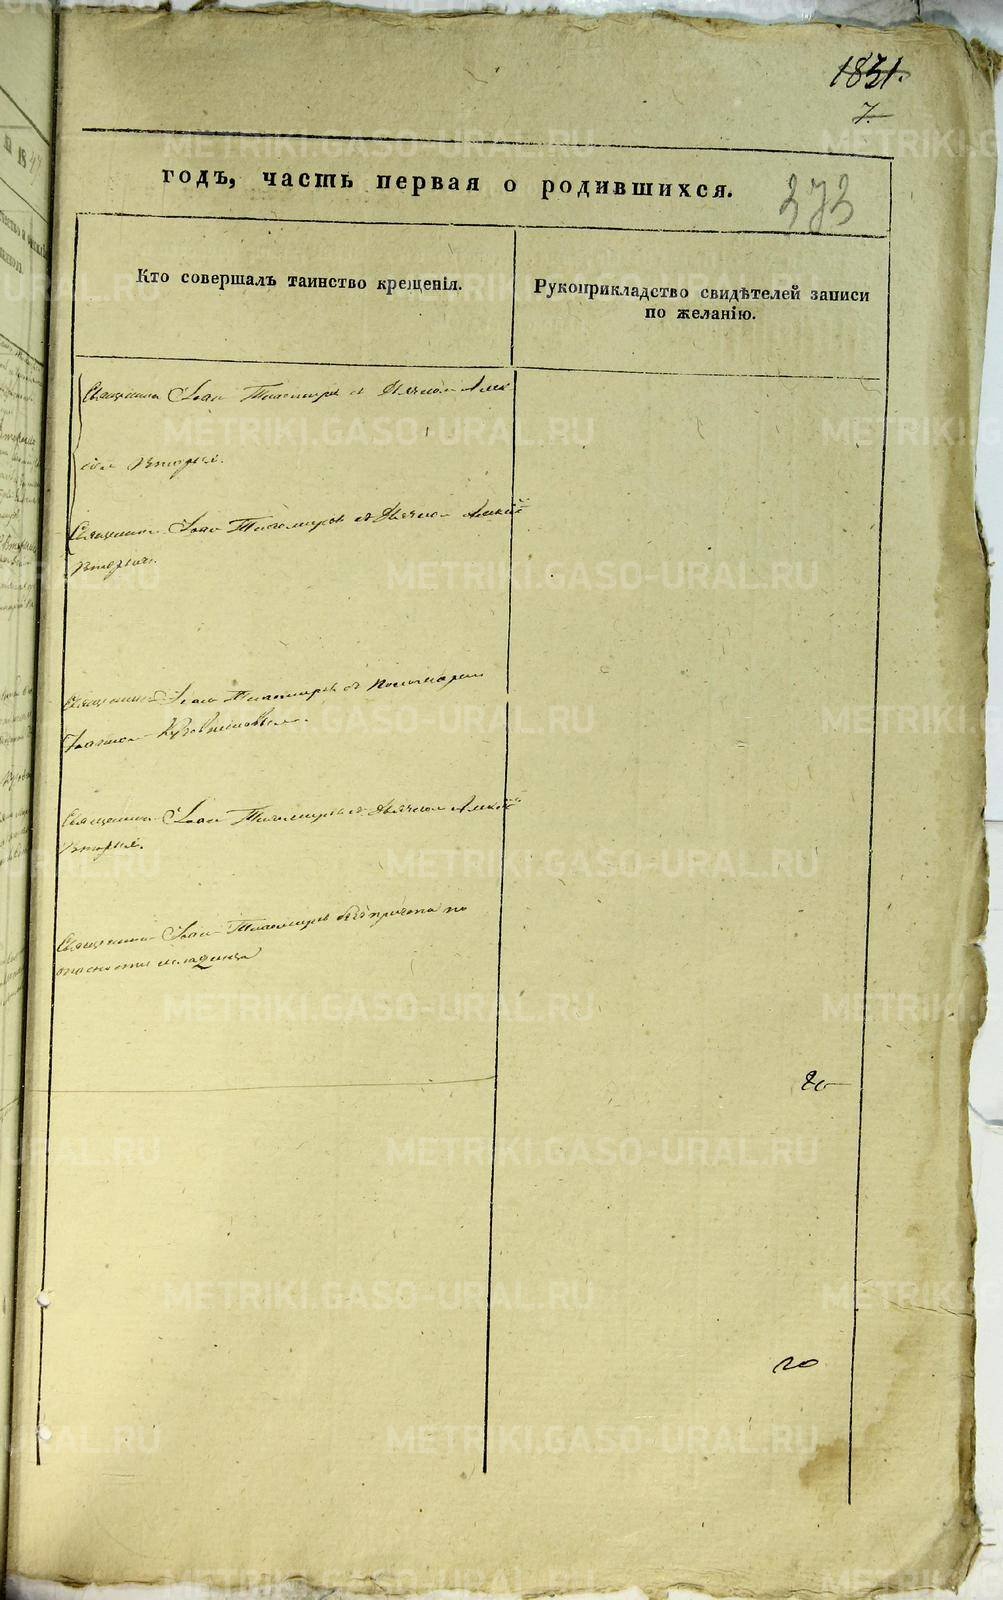 1831.
7.
годъ, часть первая о родившихся.
373
Кто совершалъ таинство крещенія.
Рукоприкладство свидѣтелей записи
по желанію.
Священникъ Іоан Тихомиров съ Дьячкомъ Алек
сіем Вторых.
Священник Іоан Тихомиров съ Дьячком Алексіем
Вторых.
Священник Іоан Тихомиров съ Пономарем
Священник Іоан Тихомиров съ Дьячком Алексіем
Вторых.
Священник Іоан Тихомиров без причта по
опасности младенца
20
METRIKI.GASO-URAL.RU